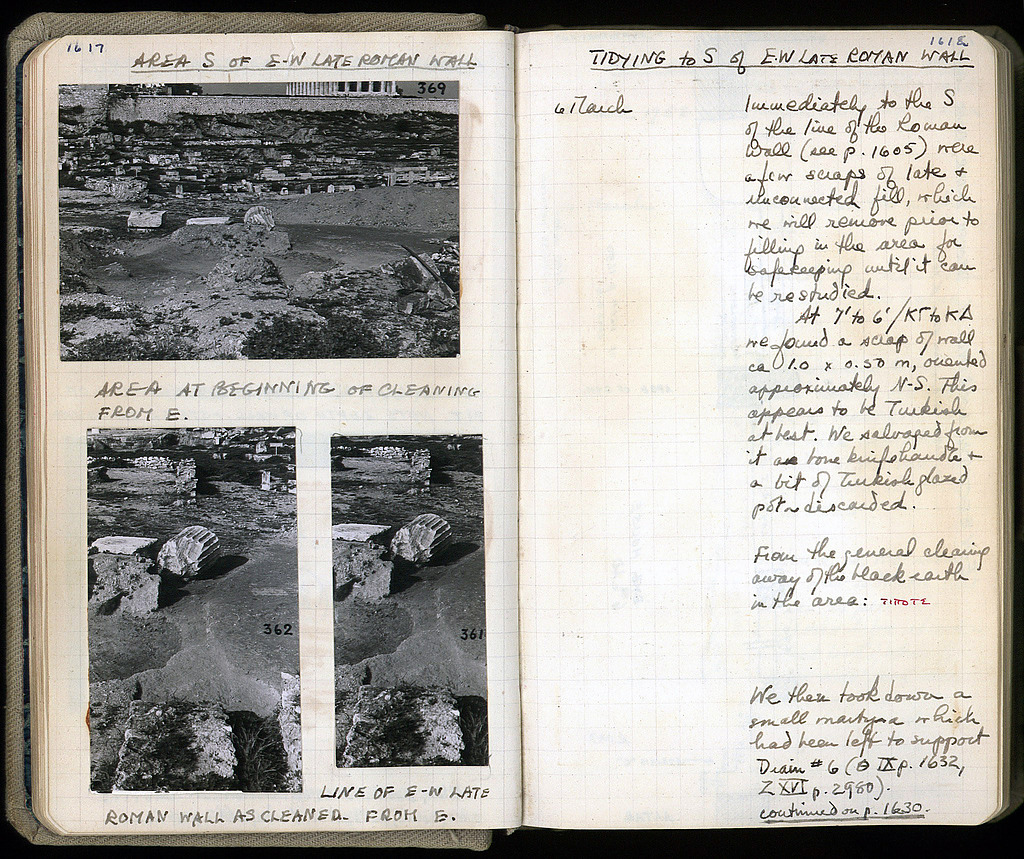 1617
AREA S OF E-W LATE ROMAN WALL
369
AREA AT BEGINNING OF CLEANING
FROM E.
362
361
LINE OF E-W LATE
ROMAN WALL AS CLEANED. FROM E.
1618
TIDYING to S of E-W LATE ROMAN WALL
6 March
Immediately to the S
of the line of the Roman
Wall (see p. 1605) were
a few scraps of late +
unconnected fill, which
we will remove prior to
filling in the area for
safekeeping until it can
be restudied.
At 7' to 6' / ΚΓ to ΚΔ
we found a scrap of wall
ca 1.0 x 0.50 m, oriented
approximately N-S. This
appears to be Turkish
at best. We salvaged from
it a bone knife handle +
a bit of Turkish glazed
pot - discarded.
From the general clearing
away of the black earth
in the area: ΤΙΠΟΤΕ
We then took down a
small martyra which
had been left to support
Drain #6 (Θ IX p. 1632,
Z XVI p. 2980).
continued on p. 1630.